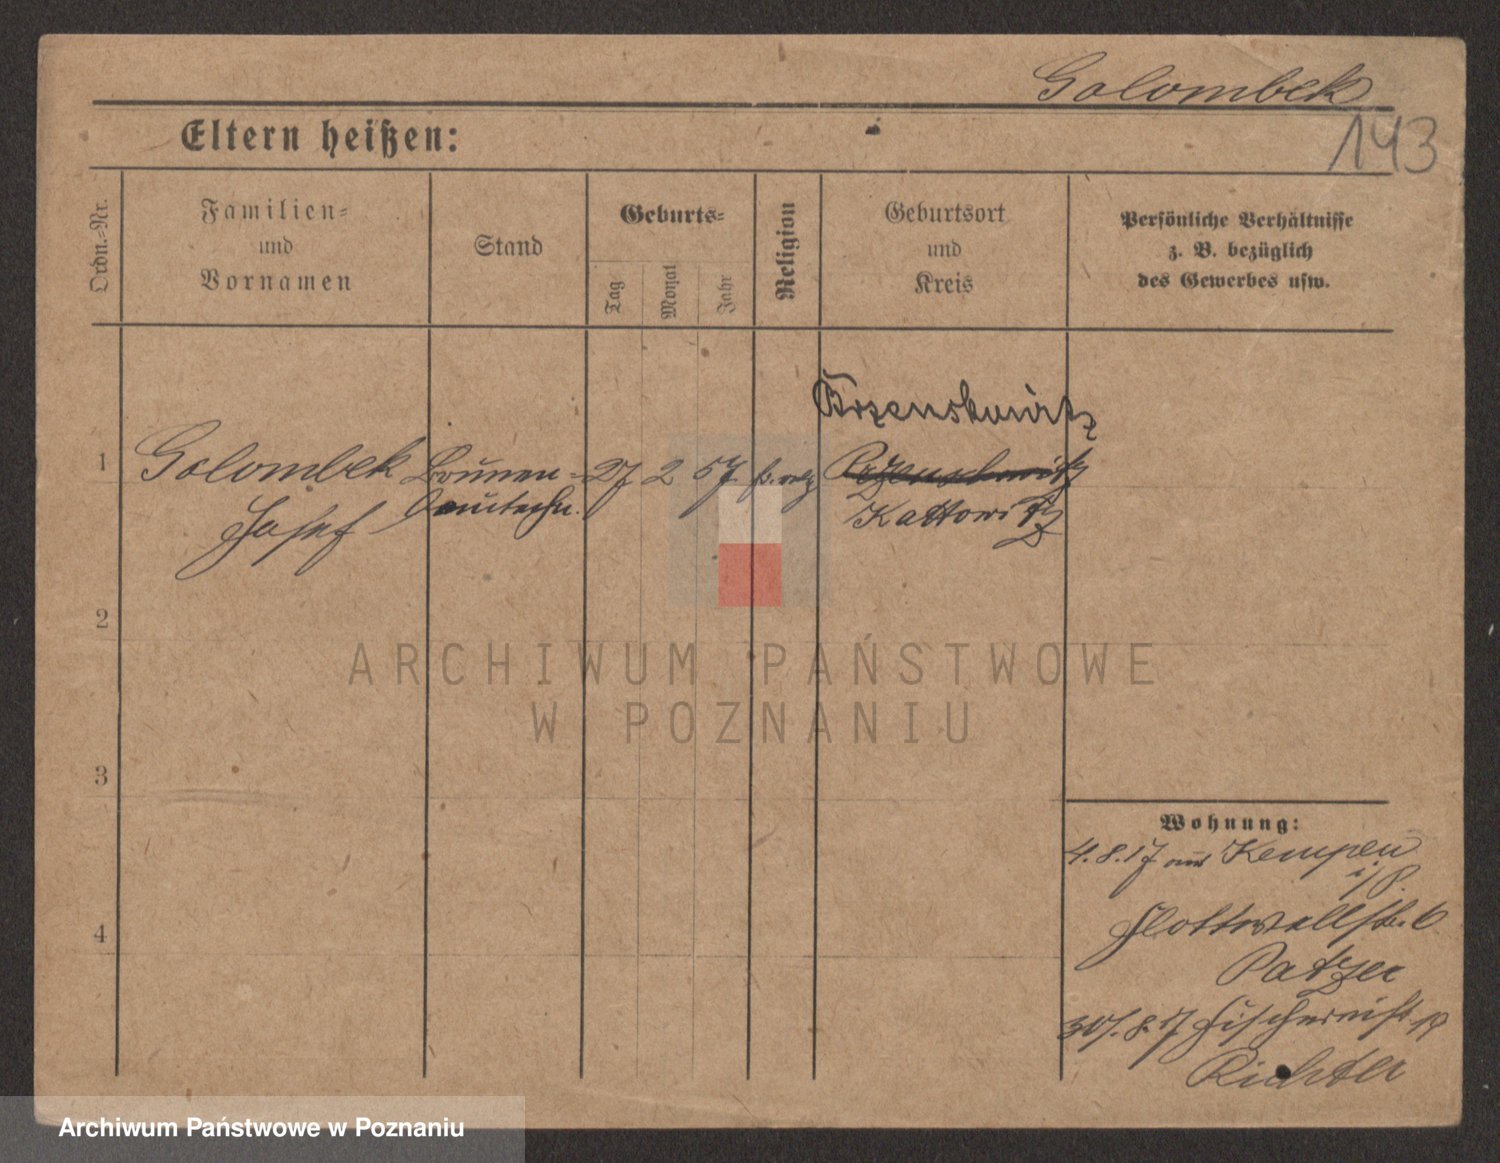 Golombek
143
Eltern heißen:
Ordn.=Nr.
Familien=
und
Vornamen
Stand
Geburts=
Tag
Monat
Jahr
Religion
Geburtsort
und
Kreis
Persönliche Verhältnisse
z. B. bezüglich
des Gewerbes usw.
Brzenskowitz
1
Golombek
Brunnen=
27 2 57
Josef
Kattowitz
2
ARCHIWUM PAŃSTWOWE
W POZNANIU
3
Wohnung:
4.8.17 aus Kempen
i/P.
4
Flottwellstr. 6
Patzer
30/.8.17
Richter
Archiwum Państwowe w Poznaniu